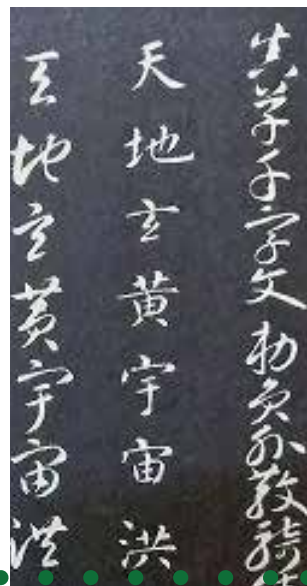 真草千字文 勅員外散騎
天地玄黄宇宙洪
天地玄黄宇宙洪